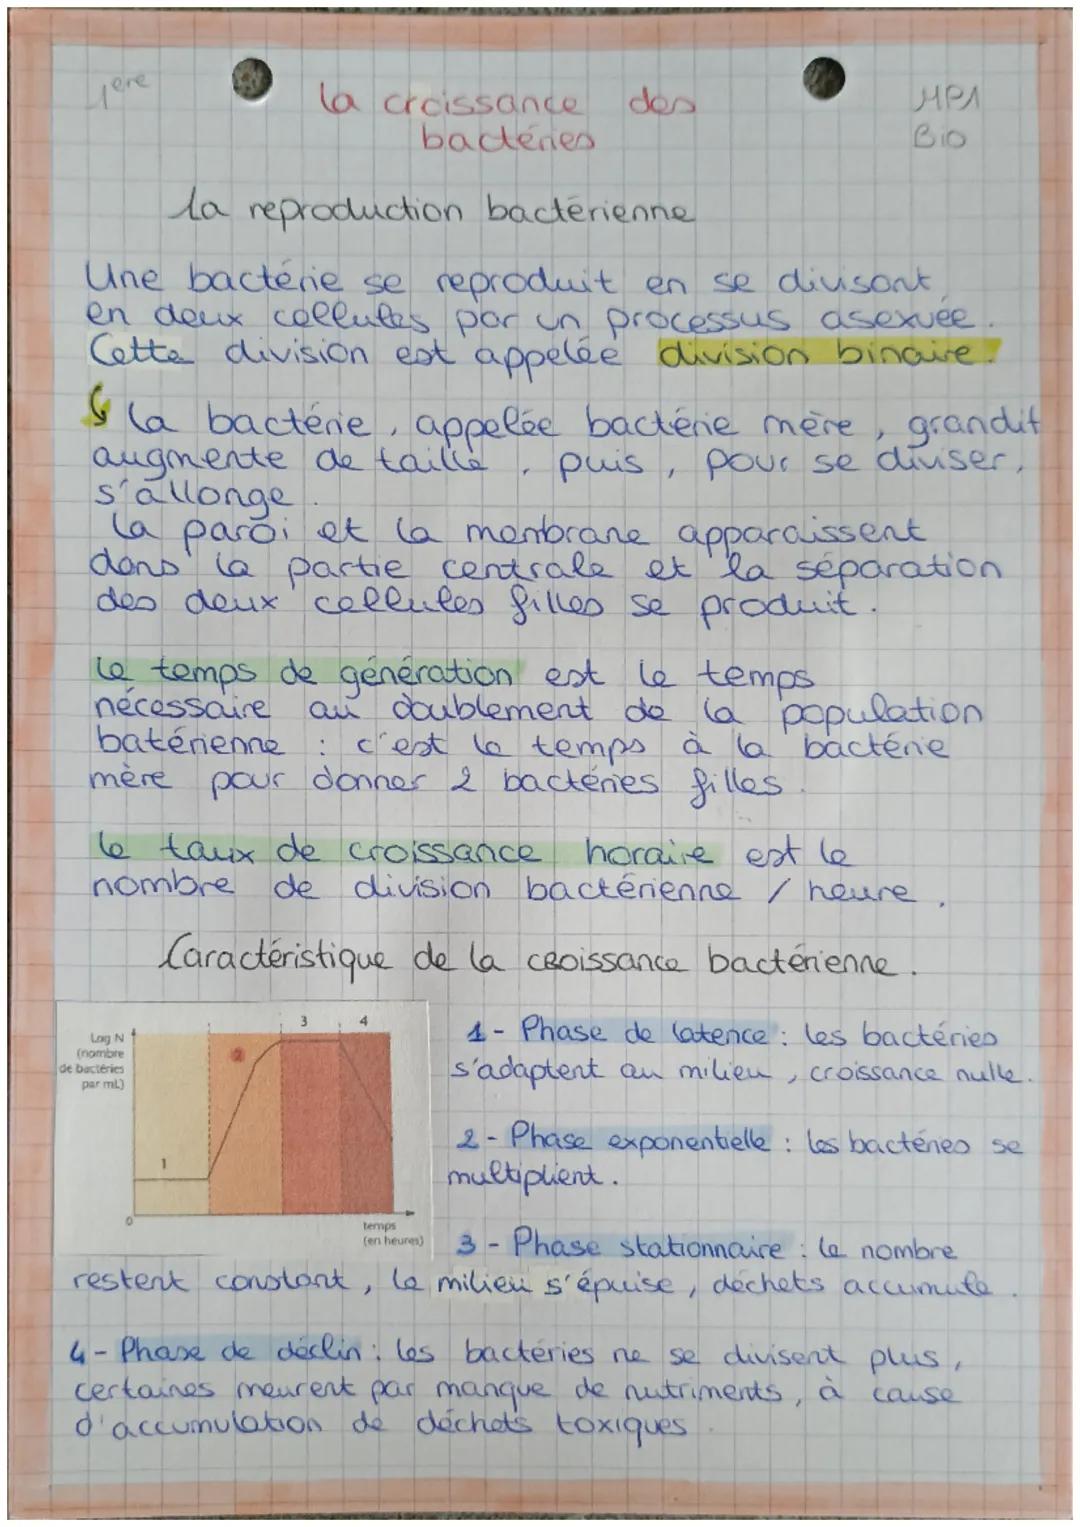 1ère
la croissance des
bactéries
MP1
Bio
La reproduction bactérienne
Une bactérie se reproduit en se divisant
en deux cellules par un processus asexuée.
Cette division est appelée division binaire.
la bactérie, appelée bactérie mère, grandit
augmente de taille, puis, pour se diviser,
s'allonge.
la paroi et la menbrane apparaissent
dans la partie centrale et la séparation
des deux cellules filles se produit.
le temps de génération est le temps
nécessaire au doublement de la population
batérienne : c'est le temps à la bactérie
mère pour donner 2 bactéries filles.
le taux de croissance horaire est le
nombre de division bactérienne / heure.
Caractéristique de la croissance bactérienne.
Log N
(nombre
de bactéries
par mL)
1
2
3
4
0
temps
(en heures)
1 - Phase de latence : les bactéries
s'adaptent au milieu, croissance nulle.
2 - Phase exponentielle : les bactéries se
multiplient.
3 - Phase stationnaire : le nombre
restent constant, le milieu s'épuise, déchets accumule.
4 - Phase de déclin : les bactéries ne se divisent plus,
certaines meurent par manque de nutriments, à cause
d'accumulation de déchets toxiques.